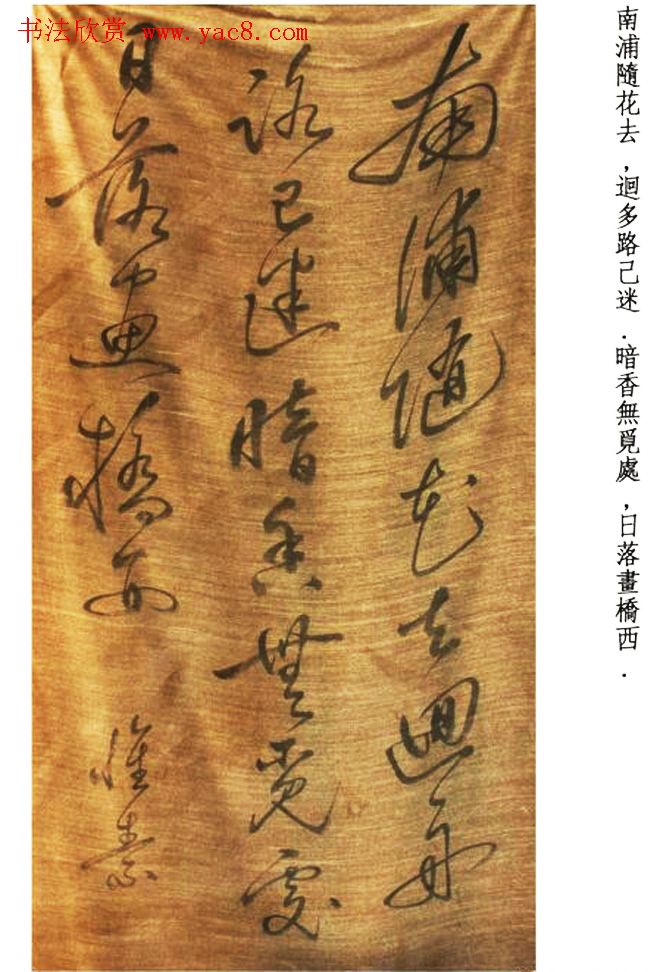 书法欣赏 www.yac8.com
南浦隨花去，迴多路己迷．暗香無覓處，日落畫橋西．
南浦隨花去迴舟
路已迷暗香無覓處
日落畫橋西
懷素